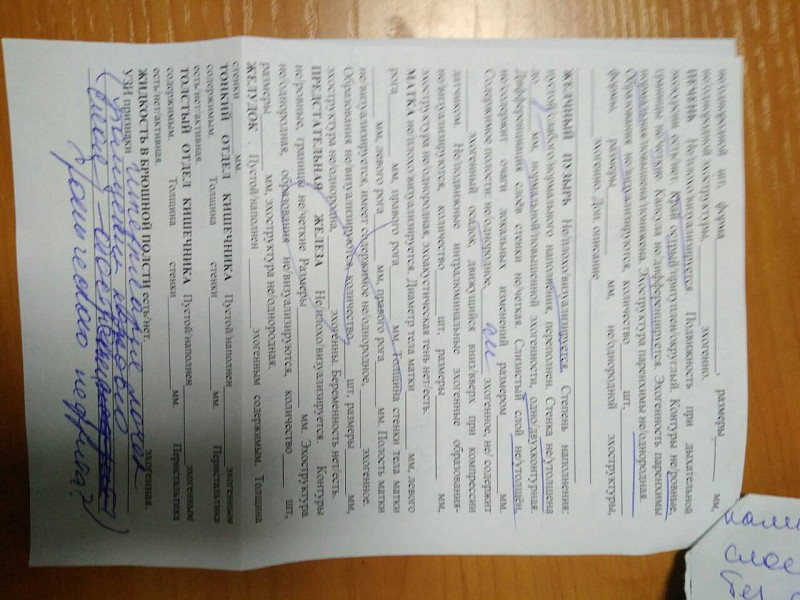 не/однородной шт, форма ________, размеры ______ мм,
не/однородной эхоструктуры, ______ эхогенно.
ПЕЧЕНЬ Не/плохо/визуализируется. Подвижность при дыхательной
экскурсии есть/нет, край острый/притуплен/округлый. Контуры не/ровные,
границы не/четкие. Капсула не/дифференцируется. Эхогенность паренхимы
нормальная/повышена/понижена. Эхоструктура паренхимы не/однородная.
Образования не/визуализируются, количество ______ шт,
формы, размеры ______ мм, не/однородной эхоструктуры,
______ эхогенно. Доп. описание
ЖЕЛЧНЫЙ ПУЗЫРЬ Не/плохо/визуализируется. Степень наполнения:
пустой/слабого/нормального наполнения, переполнен. Стенка не/утолщена
до ____ мм, нормальной/повышенной эхогенности, одно/двухконтурная.
Дифференциация слоёв стенки не/четкая. Слизистый слой не/утолщён,
не/содержит очаги локальных изменений размером ____ мм.
Содержимое полости не/однородное, ан эхогенное не/ содержит
______ эхогенный осадок, движущийся вниз/вверх при компрессии
датчиком. Не/подвижные интралюминальные эхогенные образования-
не/визуализируются, количество ____ шт, размеры ____ мм,
эхоструктура не/однородная, эхоакустическая тень нет/есть.
МАТКА не/плохо/визуализируется. Диаметр тела матки ____ мм, левого
рога ____ мм, правого рога ____ мм. Толщина стенки тела матки
____ мм, левого рога ____ мм, правого рога ____ мм. Полость матки
не/визуализируется, имеет содержимое не/однородное, ____ эхогенное.
Образования не/визуализируются, количество ____ шт, размеры ____ мм,
эхоструктура не/однородная, ____ эхогенны. Беременность нет/есть.
ПРЕДСТАТЕЛЬНАЯ ЖЕЛЕЗА Не/плохо/визуализируется. Контуры
не/ровные, границы не/четкие Размеры ____ мм. Эхоструктура
не/однородная, образования не/визуализируются, количество ____ шт,
размеры ____ мм, эхоструктура не/однородная.
ЖЕЛУДОК . Пустой/наполнен ____ эхогенным содержимым. Толщина
стенки ____ мм.
ТОНКИЙ ОТДЕЛ КИШЕЧНИКА Пустой/наполнен ____ эхогенным
содержимым. Толщина стенки ____ мм. Перистальтика
есть/нет/активная.
ТОЛСТЫЙ ОТДЕЛ КИШЕЧНИКА Пустой/наполнен ____ эхогенным
содержимым. Толщина стенки ____ мм. Перистальтика
есть/нет/активная.
ЖИДКОСТЬ В БРЮШНОЙ ПОЛСТИ есть/нет. ____ эхогенная
УЗИ признаки
нефрита?)
слое